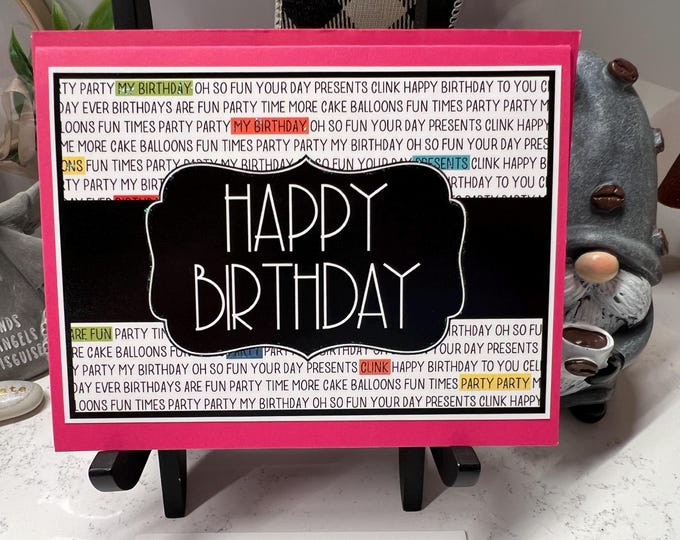 TY PARTY MY BIRTHDAY OH SO FUN YOUR DAY PRESENTS CLINK HAPPY BIRTHDAY TO YOU C
DAY EVER BIRTHDAYS ARE FUN PARTY TIME MORE CAKE BALLOONS FUN TIMES PARTY PARTY M
LOONS FUN TIMES PARTY PARTY MY BIRTHDAY OH SO FUN YOUR DAY PRESENTS CLINK HAPPY
DAY EVER BIRTHDAYS ARE FUN PARTY TIME MORE CAKE BALLOONS FUN TIMES PARTY PARTY
ONS FUN TIMES PARTY PARTY MY BIRTHDAY OH SO FUN YOUR DAY PRESENTS CLINK HAPPY B
PARTY PARTY MY BIRTHDAY OH SO CLINK HAPPY BIRTHDAY TO YOU CEL
HAPPY
BIRTHDAY
ARE FUN PARTY TIM BIRTHDAY OH SO FU
RE CAKE BALLOONS FUN TIMES PARTY FUN YOUR DAY PRESENTS
BIRTHDAY OH SO FUN YOUR DAY PRESENTS CLINK HAPPY BIRTHDAY TO YOU CEL
DAY EVER BIRTHDAYS ARE FUN PARTY TIME MORE CAKE BALLOONS FUN TIMES PARTY PARTY M
LOONS FUN TIMES PARTY PARTY MY BIRTHDAY OH SO FUN YOUR DAY PRESENTS CLINK HAPPY
NDS
ANGELS
ISGUISE